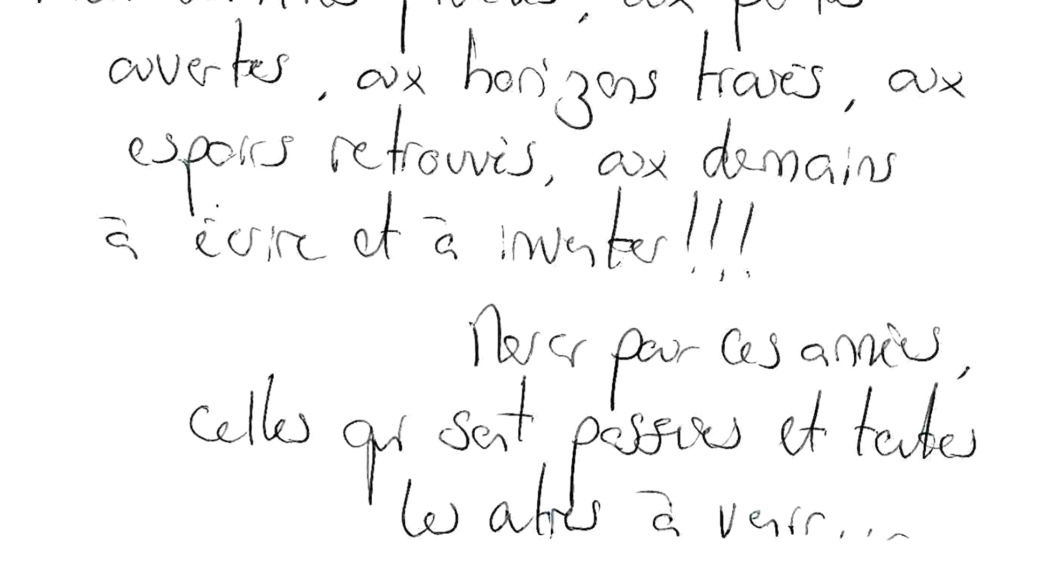 ouvertes, aux horizons trouvés, aux
espoirs retrouvés, aux demains
à écrire et à inventer!!!
Merci pour ces années,
celles qui sont passées et toutes
les autres à venir...